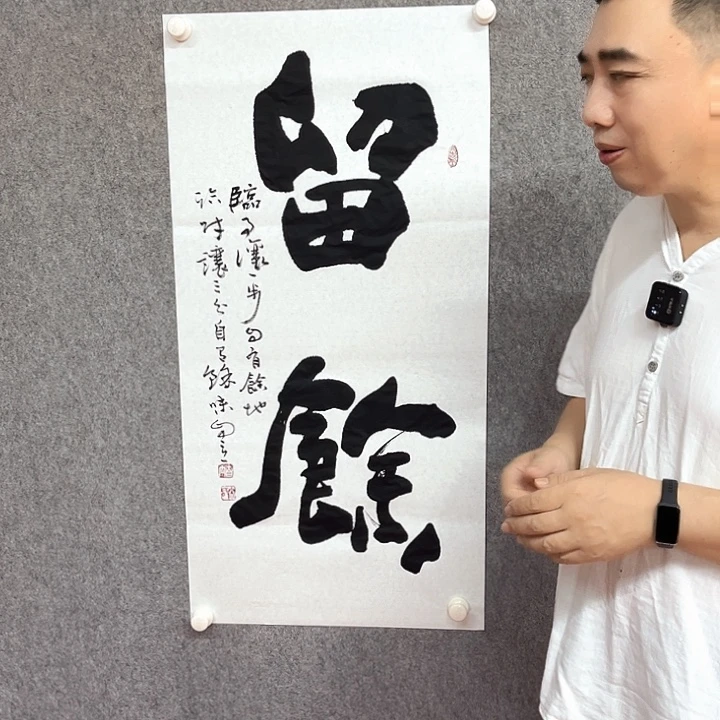 留餘
臨事讓一步自有餘地
临财讓三分自有餘味